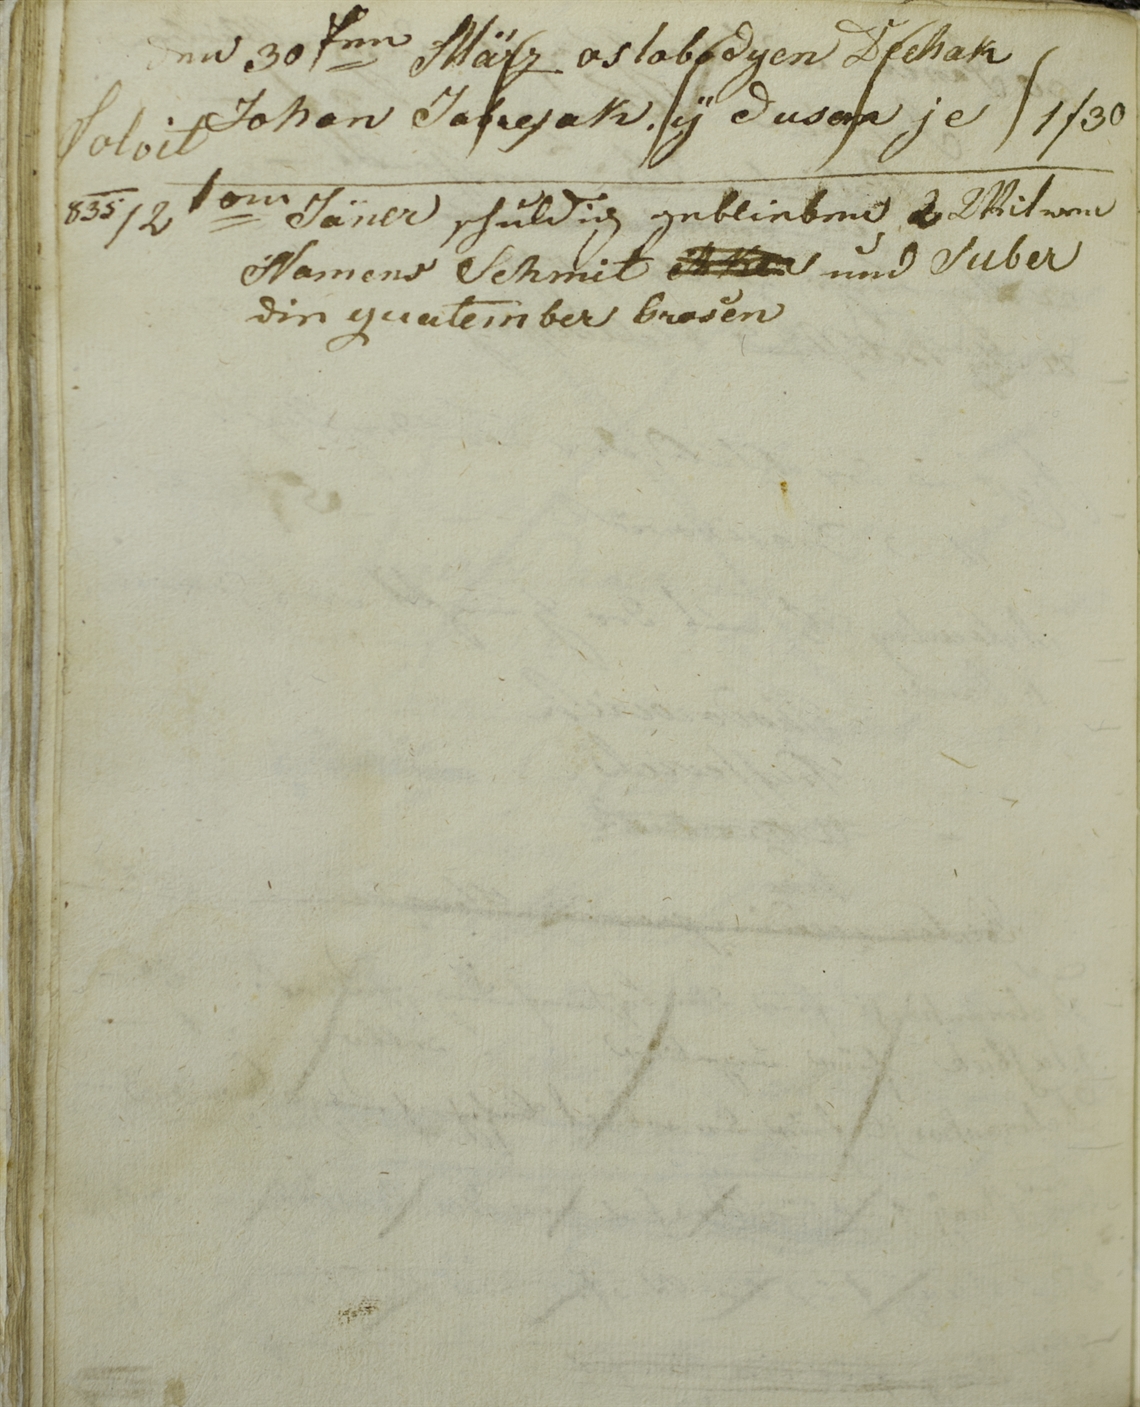 den 30ten März oslobodyen Dechak
Solvit Johan Jabrejak. ÿ dusan je 1/30
835/2 ten Jäner schuldig geblieben 2 Witwen
Namens Schmit und Suber
din quatember brosen